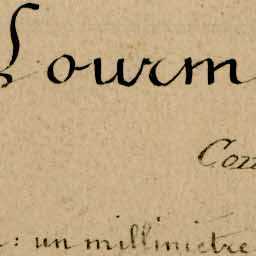 Lourm
Con
: un millimètre